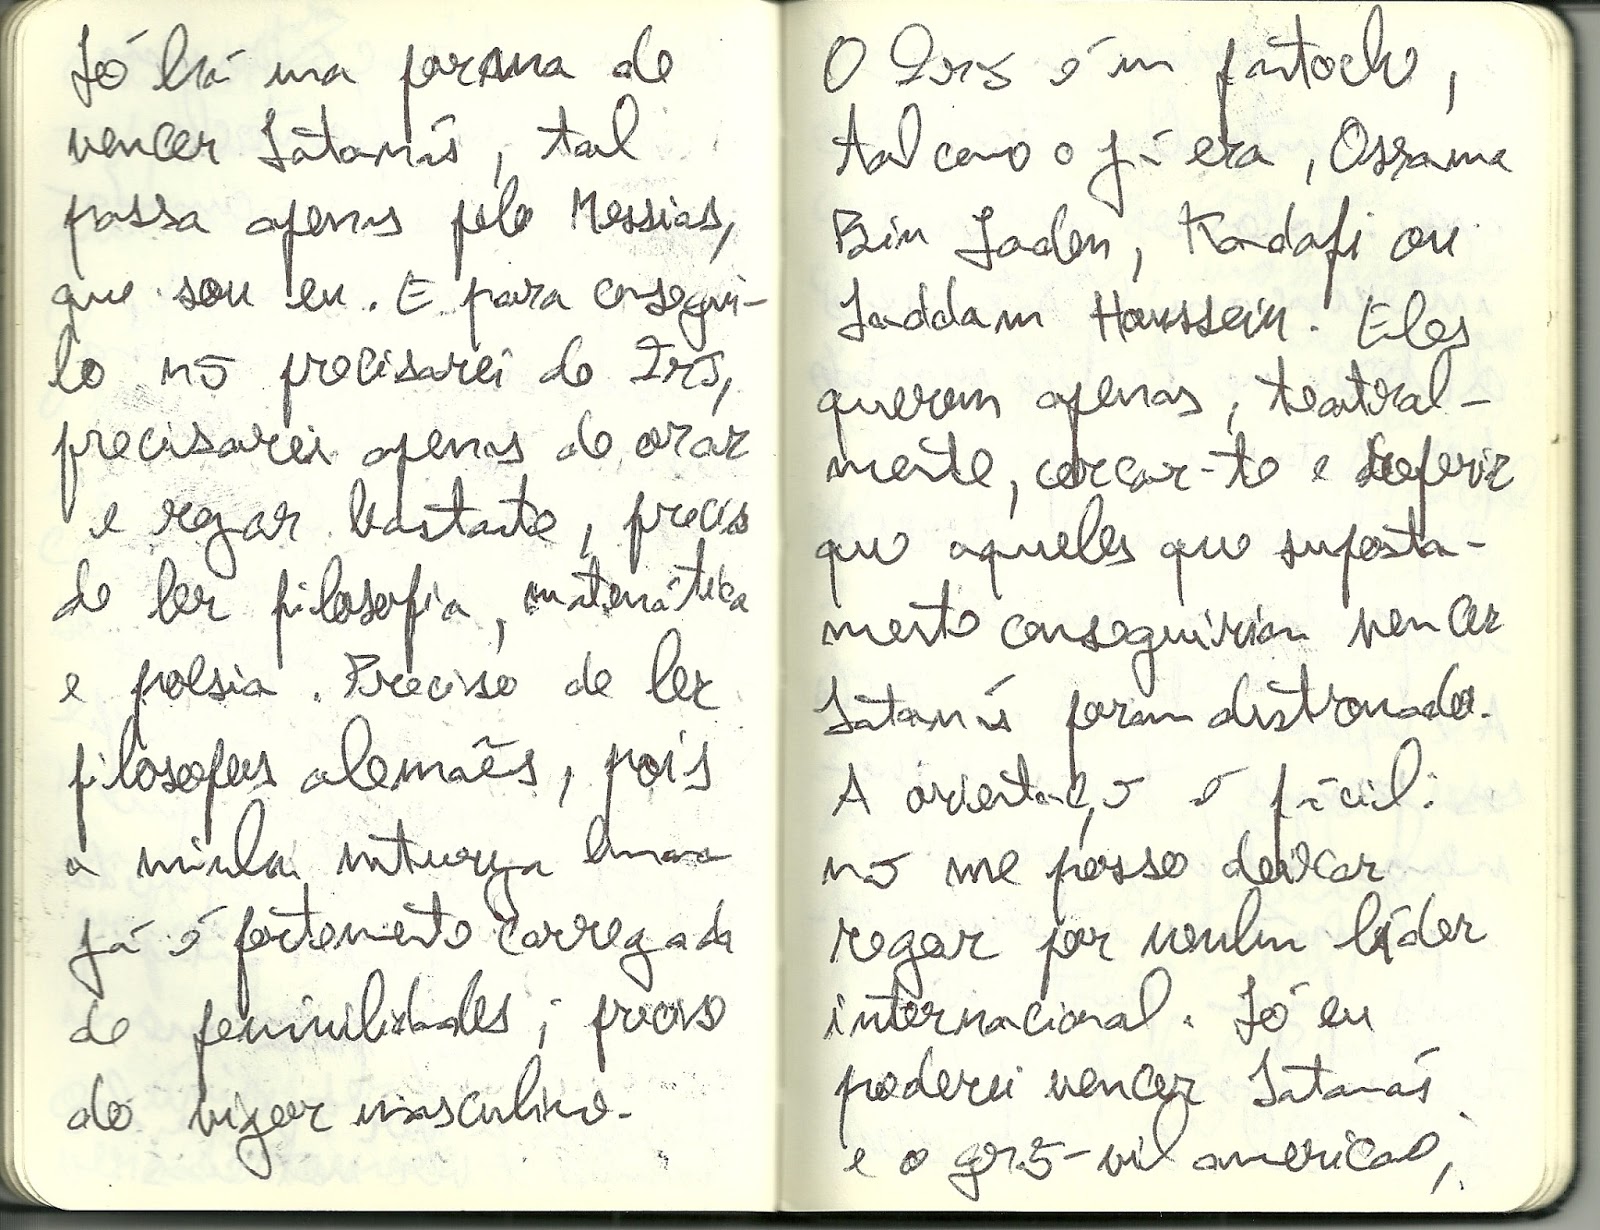 Só há uma forma de
vencer Satanás, tal
passa apenas pelo Messias,
que sou eu. E para consegui-
lo não precisarei do Irão,
precisarei apenas de orar
e regar bastante, preciso
de ler filosofia, matemática
e poesia. Preciso de ler
filósofos alemães, pois
a minha natureza humana
já é fortemente carregada
de feminilidades; preciso
do vigor masculino.
O Irão é um fantoche,
tal como o já era, Ossama
Bin Laden, Kadafi ou
Saddam Houssein. Eles
querem apenas, teatral-
mente, cercar-te e referir
que aqueles que suposta-
mente conseguiriam vencer
Satanás foram distronados.
A orientação é fácil:
não me posso deixar
regar por nenhum líder
internacional. Só eu
poderei vencer Satanás
e o grão-vil americano,